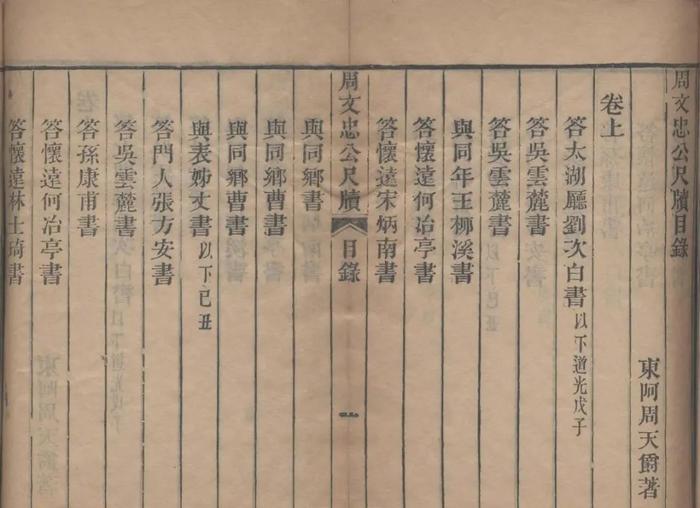 周文忠公尺牘目錄
東阿周天爵著
卷上
答太湖廳劉次白書以下道光戊子
答吳雲麓書
答吳雲麓書
與同年王柳溪書
答懷遠何冶亭書
答懷遠宋炳南書
周文忠公尺牘 目錄 一
與同鄉書
與同鄉曹書
與同鄉曹書
與表姊丈書以下己丑
答門人張方安書
答吳雲麓書
答孫康甫書
答懷遠何冶亭書
答懷遠林士琦書